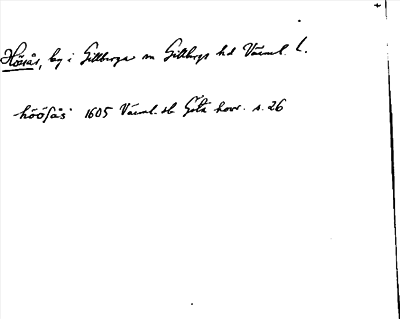 Hösås, by i Gillberga sn Gillbergs hd Värml. l.
höösås 1605 Värml. sb Göta hovr. s. 26